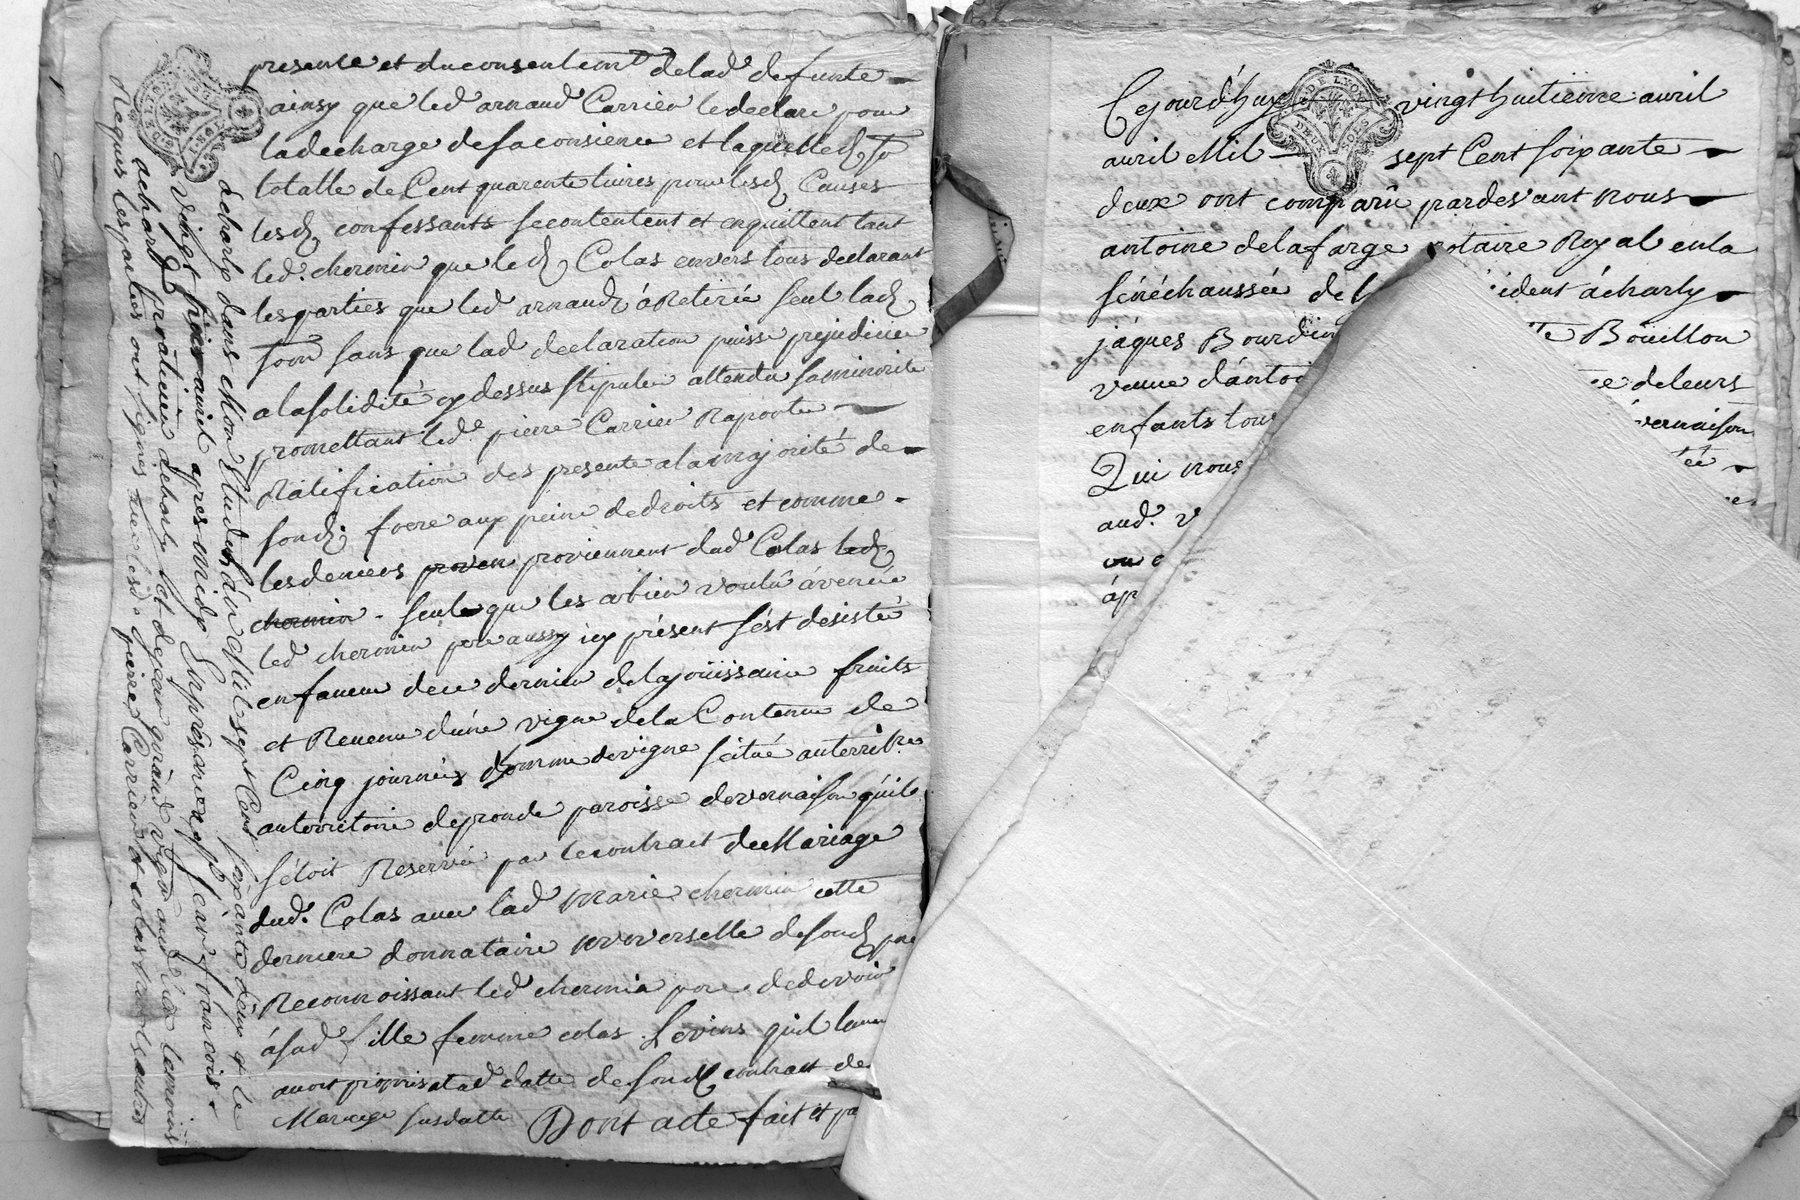 presence et du consentemt delad defunte
ainsy que led arnaud Carrier le declare pour
la decharge de sa consience et laquelle
totalle de Cent quarente livres pour lesd Causes
lesd confessants se contentent et enquittent tant
led. chermin que led Colas envers tous declarant
les parties que led arnaud à Retiré seul lad
sans que lad declaration puisse prejudicier
a la solidité cy dessus stipulée attendu sa minorité
promettant led. pierre Carrier Raporter
Ratification des presente a la majorité de
sond frere aux peine de droits et comme
les deniers proven proviennent dud Colas led
chermin seul que les a bien voulu avencé
led chermin pere aussy icy présent s'est desisté
en faveur de ce dernier de la joüissance fruits
et Revenu d'une vigne de la Contenue de
Cinq journées d'homme de vigne scitué au territre
au territoire de pronde paroisse de vernaison qu'il
s'étoit Reservée par le contract de Mariage
dud. Colas avec lad marie chermin cette
derniere donnataire universelle de sond pere
Reconnoissant led chermin pere dedevoir
à sad fille femme colas
avoit promis datte de sond contract de
Mariage susdatte Dont acte fait et pa
à charly dans Mon Etude L'an Mil sept Cent soixante deux et le
vingt trois avril apres midy En presance de sr jean francois
praticien à charly et de jean giraud vigneron aud lieu temoins
Requis les parties ont signés non lesd pierre Carrier et colas
Cejourd'huy vingt huitième avril
avril Mil sept Cent soixante
deux ont comparû pardevant nous
antoine delafarge notaire Royal en la
sénéchaussée de ident à charly
jâques Bourdin te Boüillon
veuve d'anto de leurs
enfants tous vernaison
Qui nous tée
aud.
ou
áp
DE LYON
DEUX SOLS